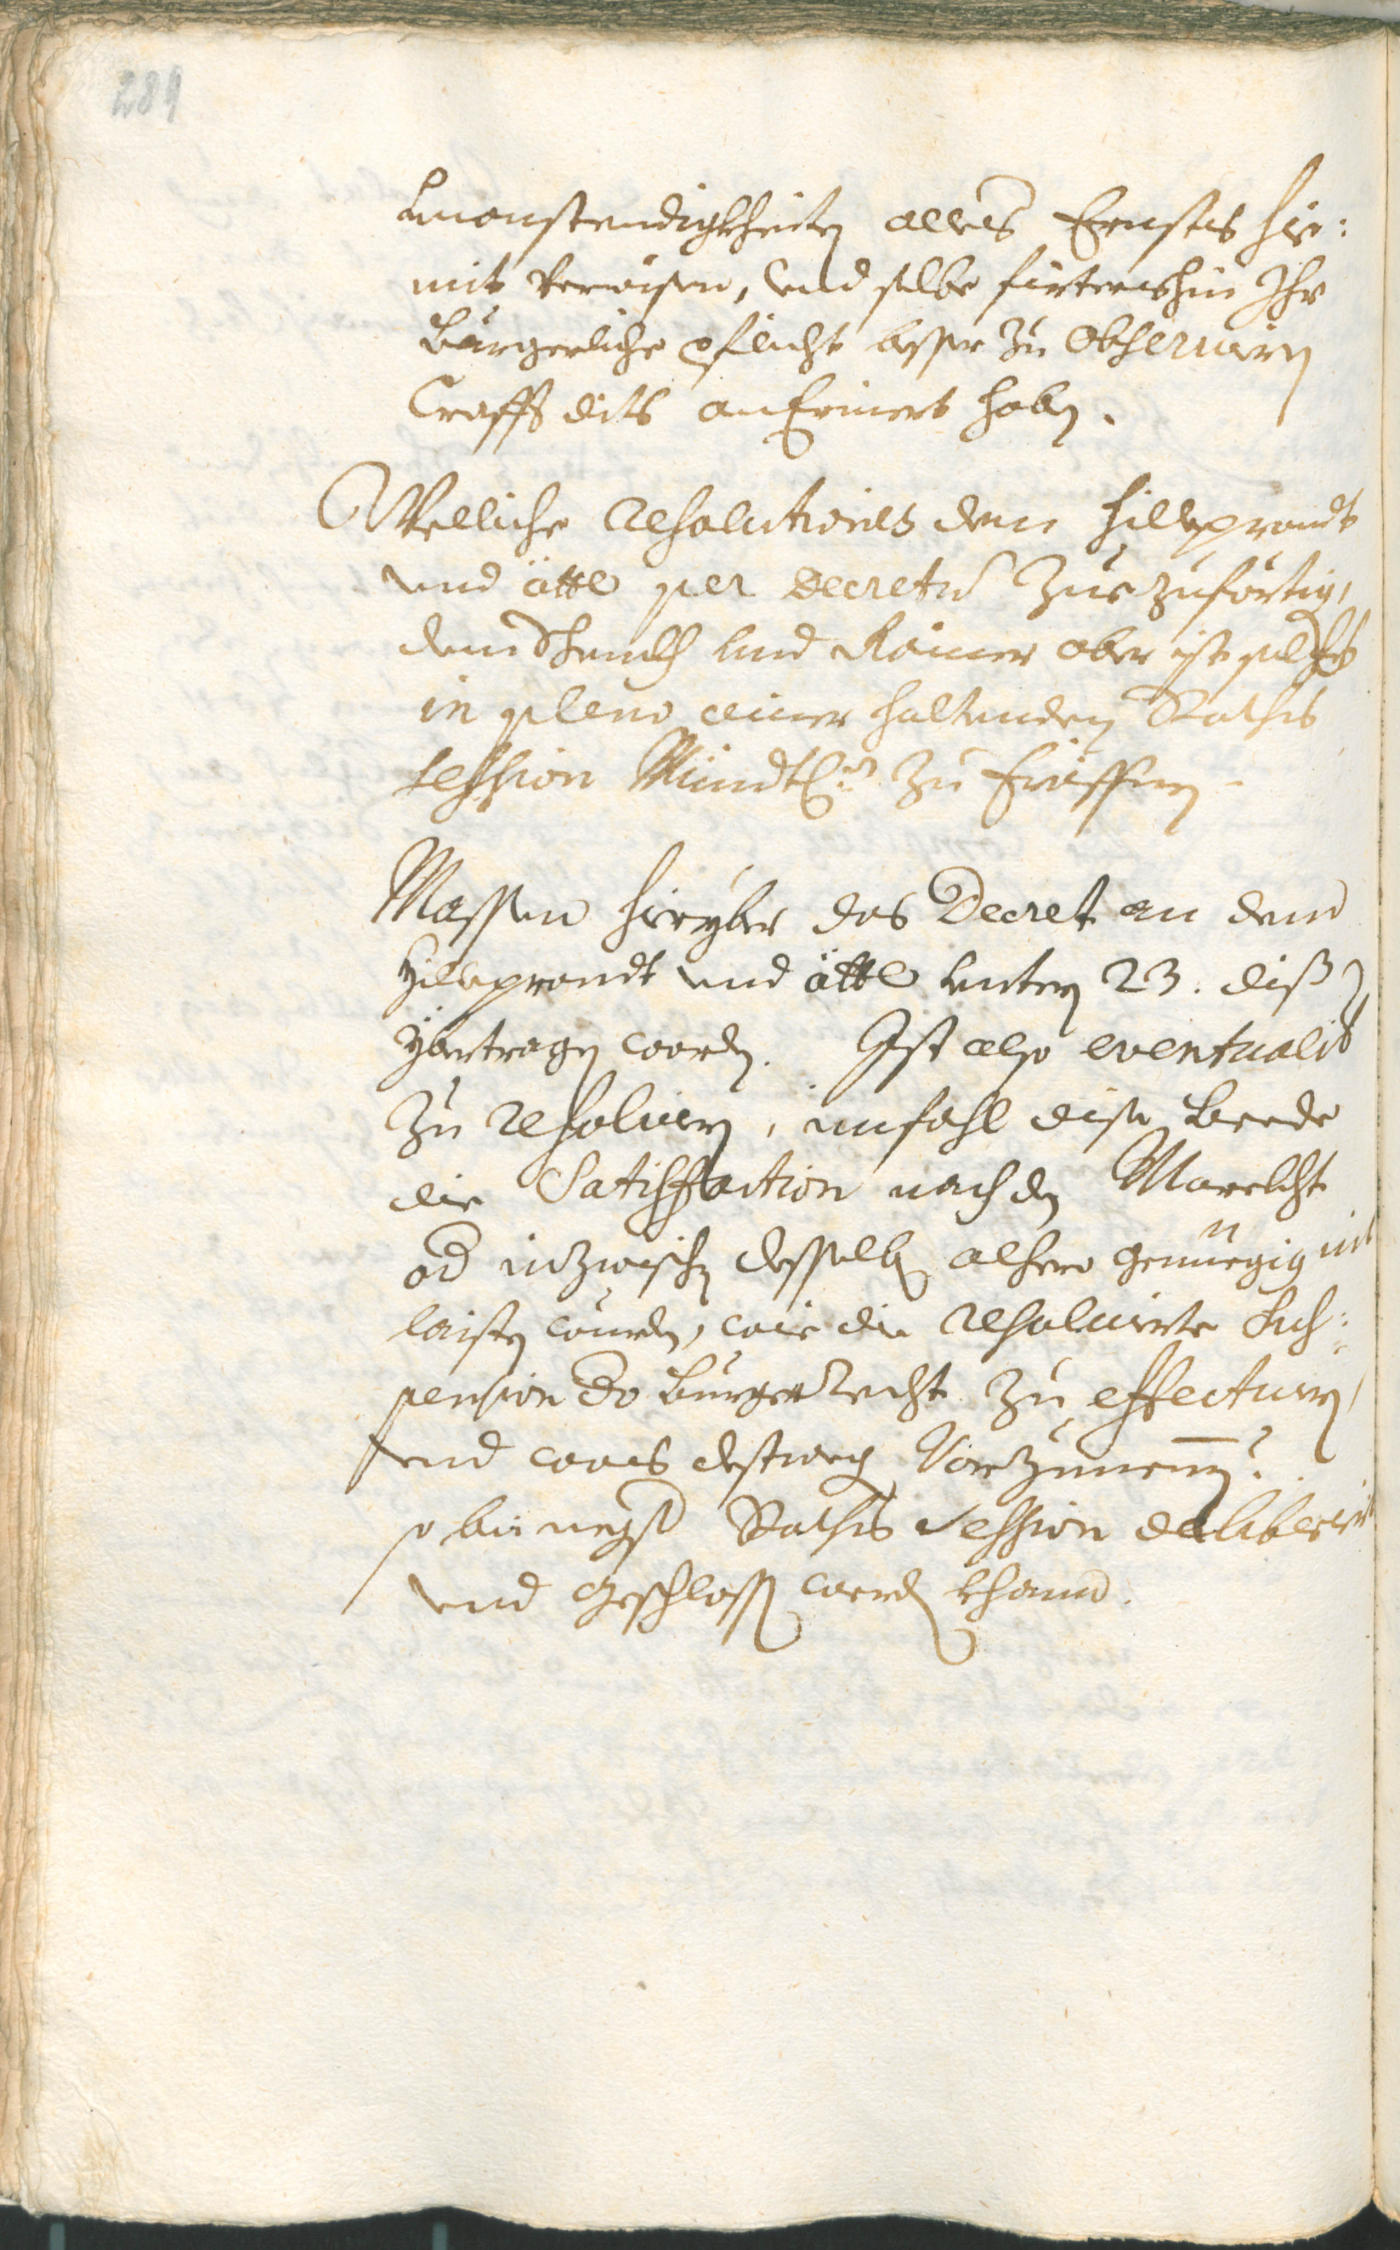 289
Unanstendigkheiten alles Ernstes hie:
mit verwisen, und selbe fürtershin Ihr
Bürgerliche pflicht besser zu observiren
Crafft dits anErinert haben.
Welliche resolutiones dem Hilleprandt
und ätte per Decretum zuezuförtig,
dem und Rainer aber ist solches
in pleno ainer haltenden Raths
session Mündtl: zu Eröffnen
Massen hieryber das Decret an dem
Hilleprandt und ätte untern 23. diß
ybertragen worden. Ist also eventualiter
zu resolvirn, imfahl dise beede
die Satisfaction nach den Marckht
od inzwischen desselben alhero genuegig nit
laisten wurden, wie die resolvierte Sus:
pension do burgerRecht zu effectuiren,
und waß destweg Vorzunemen?
so bei negst Raths session deliberirt
und geschlossen werden khann.